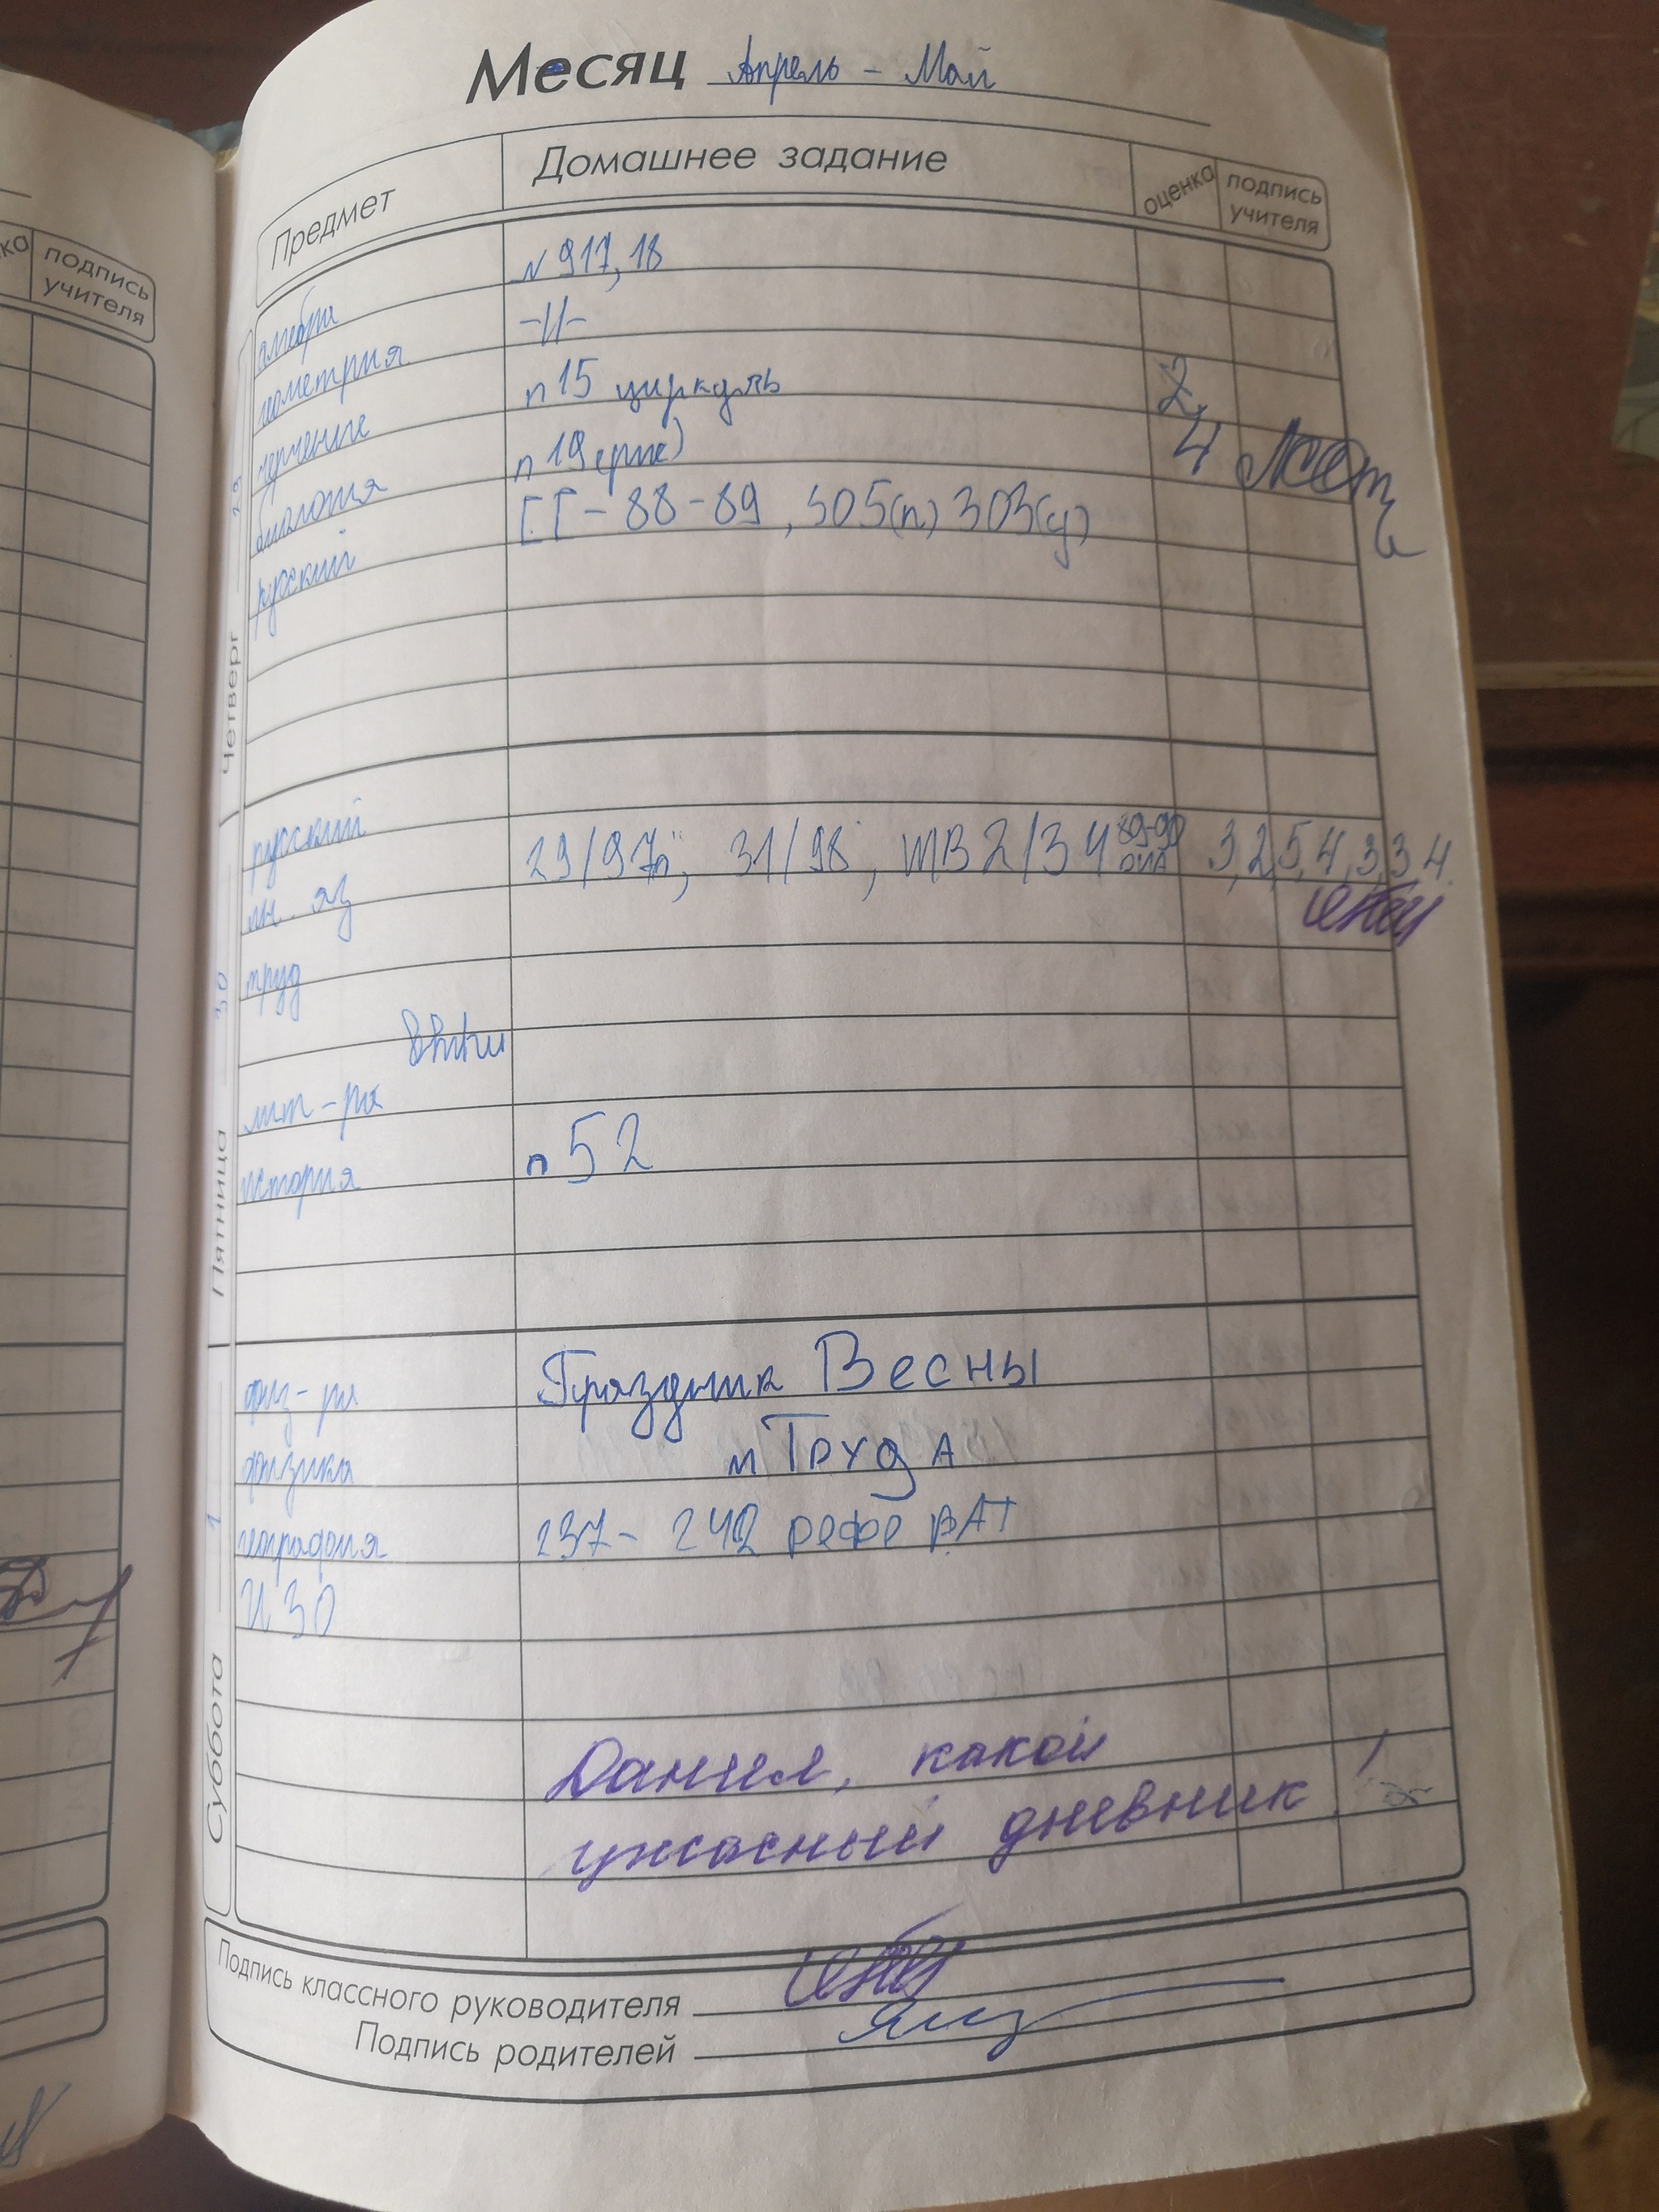 Месяц Апрель - Май
Предмет Домашнее задание оценка подпись учителя
ка подпись учителя
Четверг 29
алгебра №917, 18
геометрия -11-
черчение п 15 циркуль 2,
биология п 19 4
русский - 88-89, 305(п) 303(у)
Пятница 30
русский
ин. яз 29/97п, 31/98, 2/34 89-90 3,2,5,4,3,3 4
труд
лит-ра
история п 52
Суббота 1
физ-ра Праздник Весны
физика и Труда
география 237- 242 реферат
ИЗО
Данил, какой
ужасный дневник!
Подпись классного руководителя
Подпись родителей